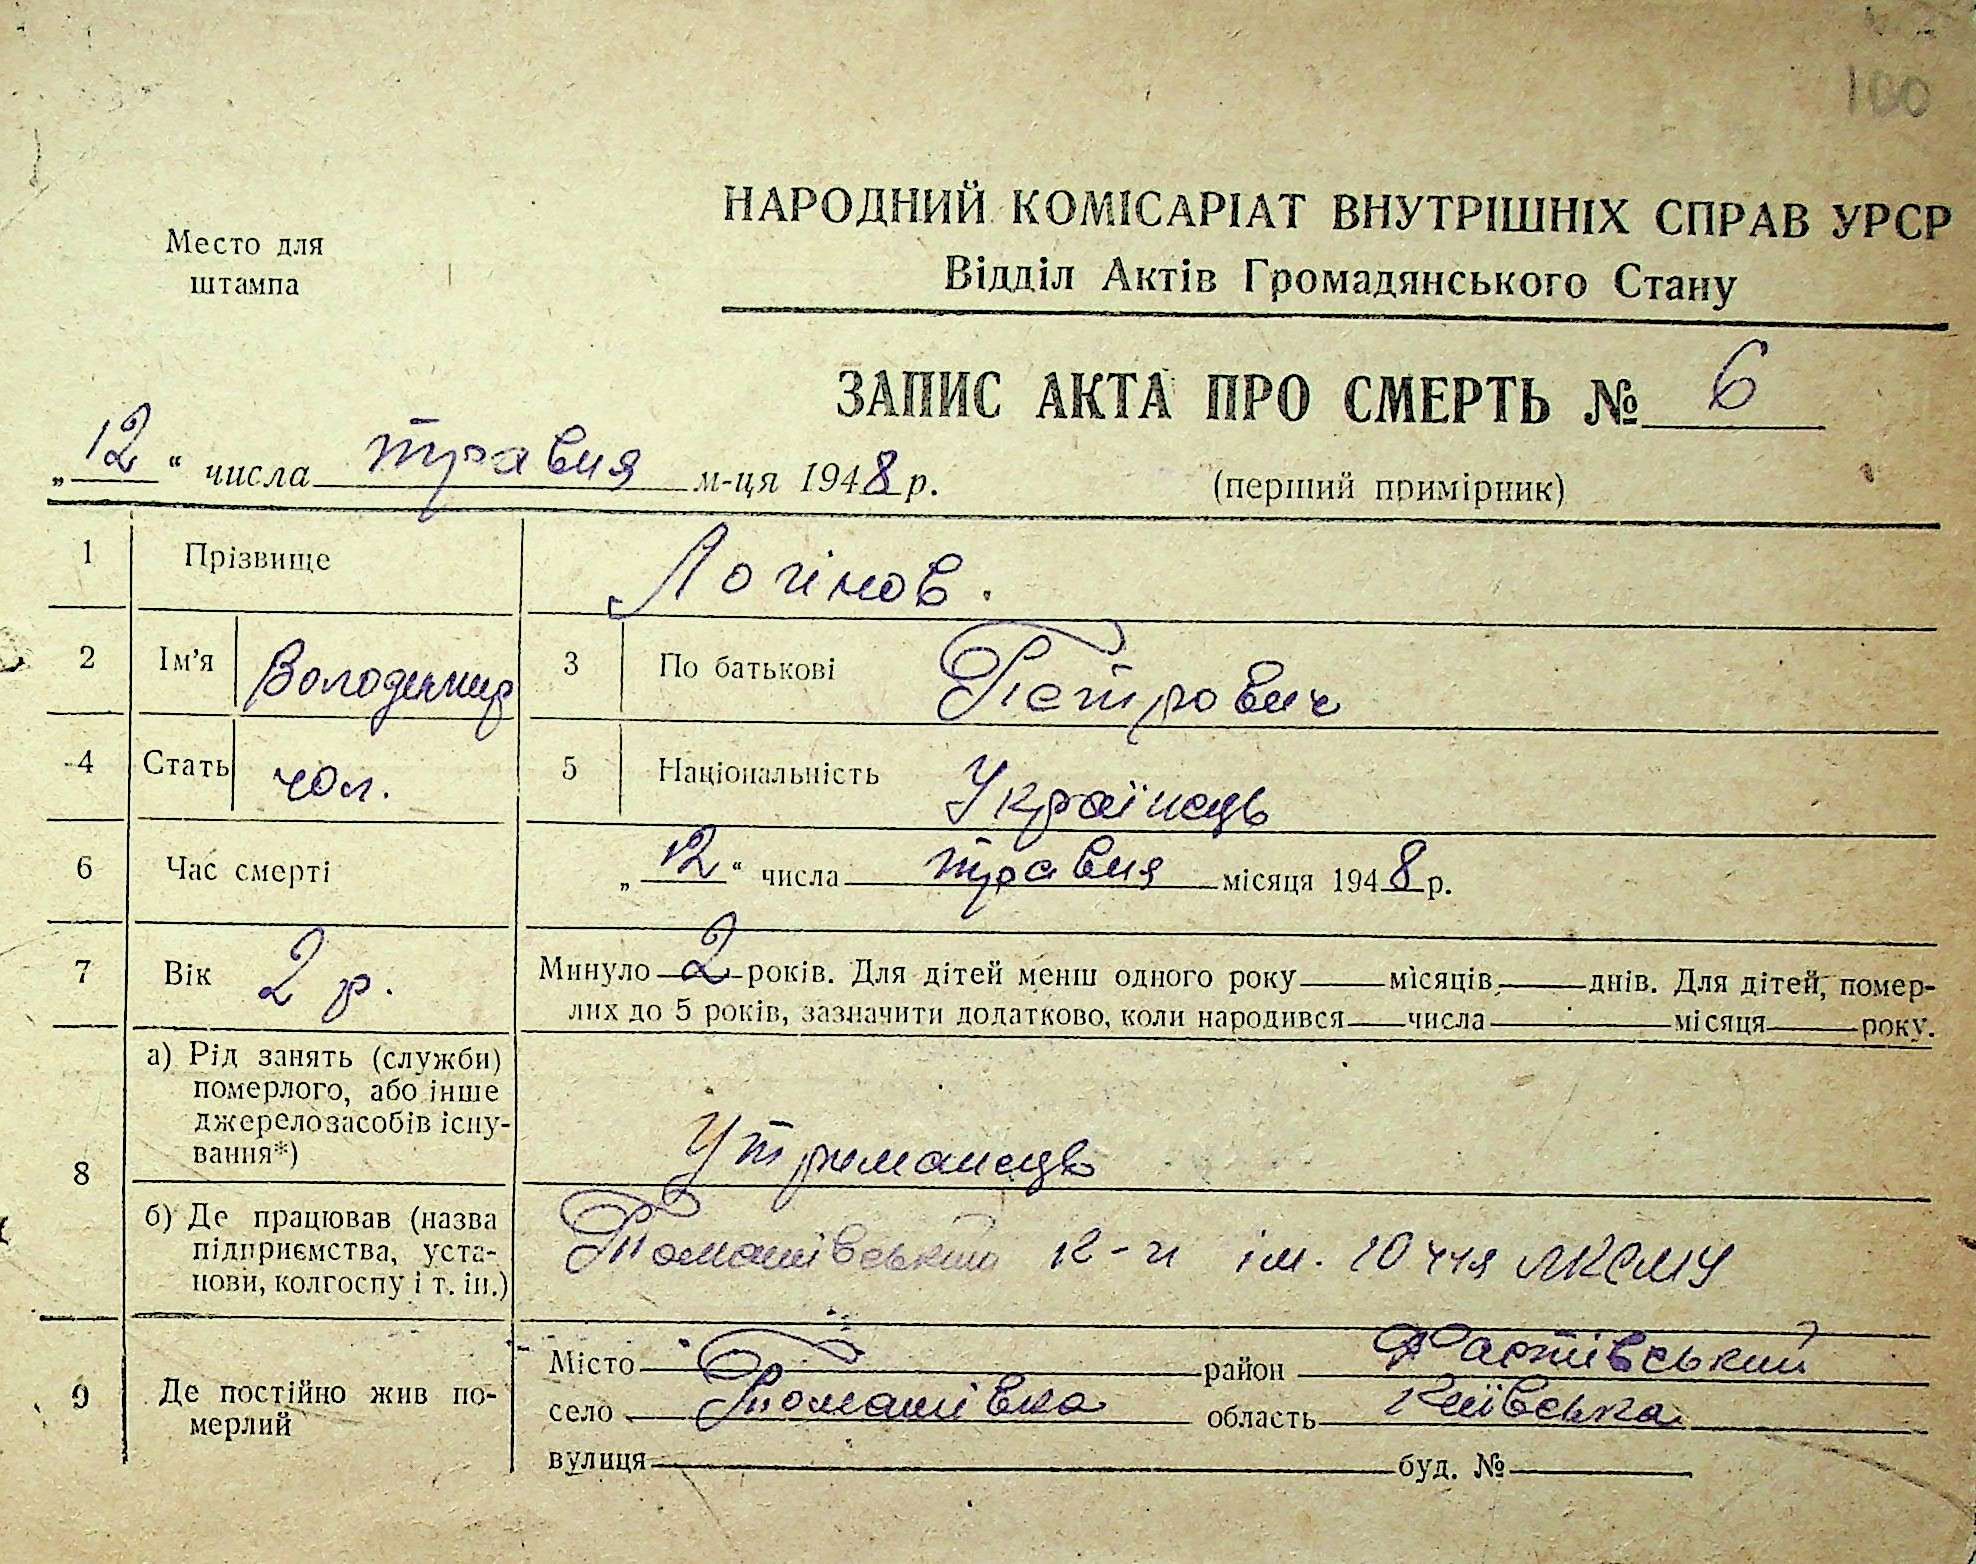 100
НАРОДНИЙ КОМІСАРІАТ ВНУТРІШНІХ СПРАВ УРСР
Место для
штампа
Відділ Актів Громадянського Стану
ЗАПИС АКТА ПРО СМЕРТЬ № 6
„12“ числа травня м-ця 1948 р.
(перший примірник)
1 Прізвище Логінов.
2 Ім’я Володимир 3 По батькові Петрович
4 Стать чол. 5 Національність Українець
6 Час смерті „12“ числа травня місяця 1948 р.
7 Вік 2 р. Минуло 2 років. Для дітей менш одного року місяців, днів. Для дітей, помер-
лих до 5 років, зазначити додатково, коли народився числа місяця року.
8 а) Рід занять (служби)
померлого, або інше
джерело засобів існу-
вання*) Утриманець
б) Де працював (назва
підприємства, уста-
нови, колгоспу і т. ін.) Томашівський к-п ім. 10 ччя ЛКСМУ
9 Де постійно жив по-
мерлий
Місто район Фастівський
село Томашівка область Київська
вулиця буд. №